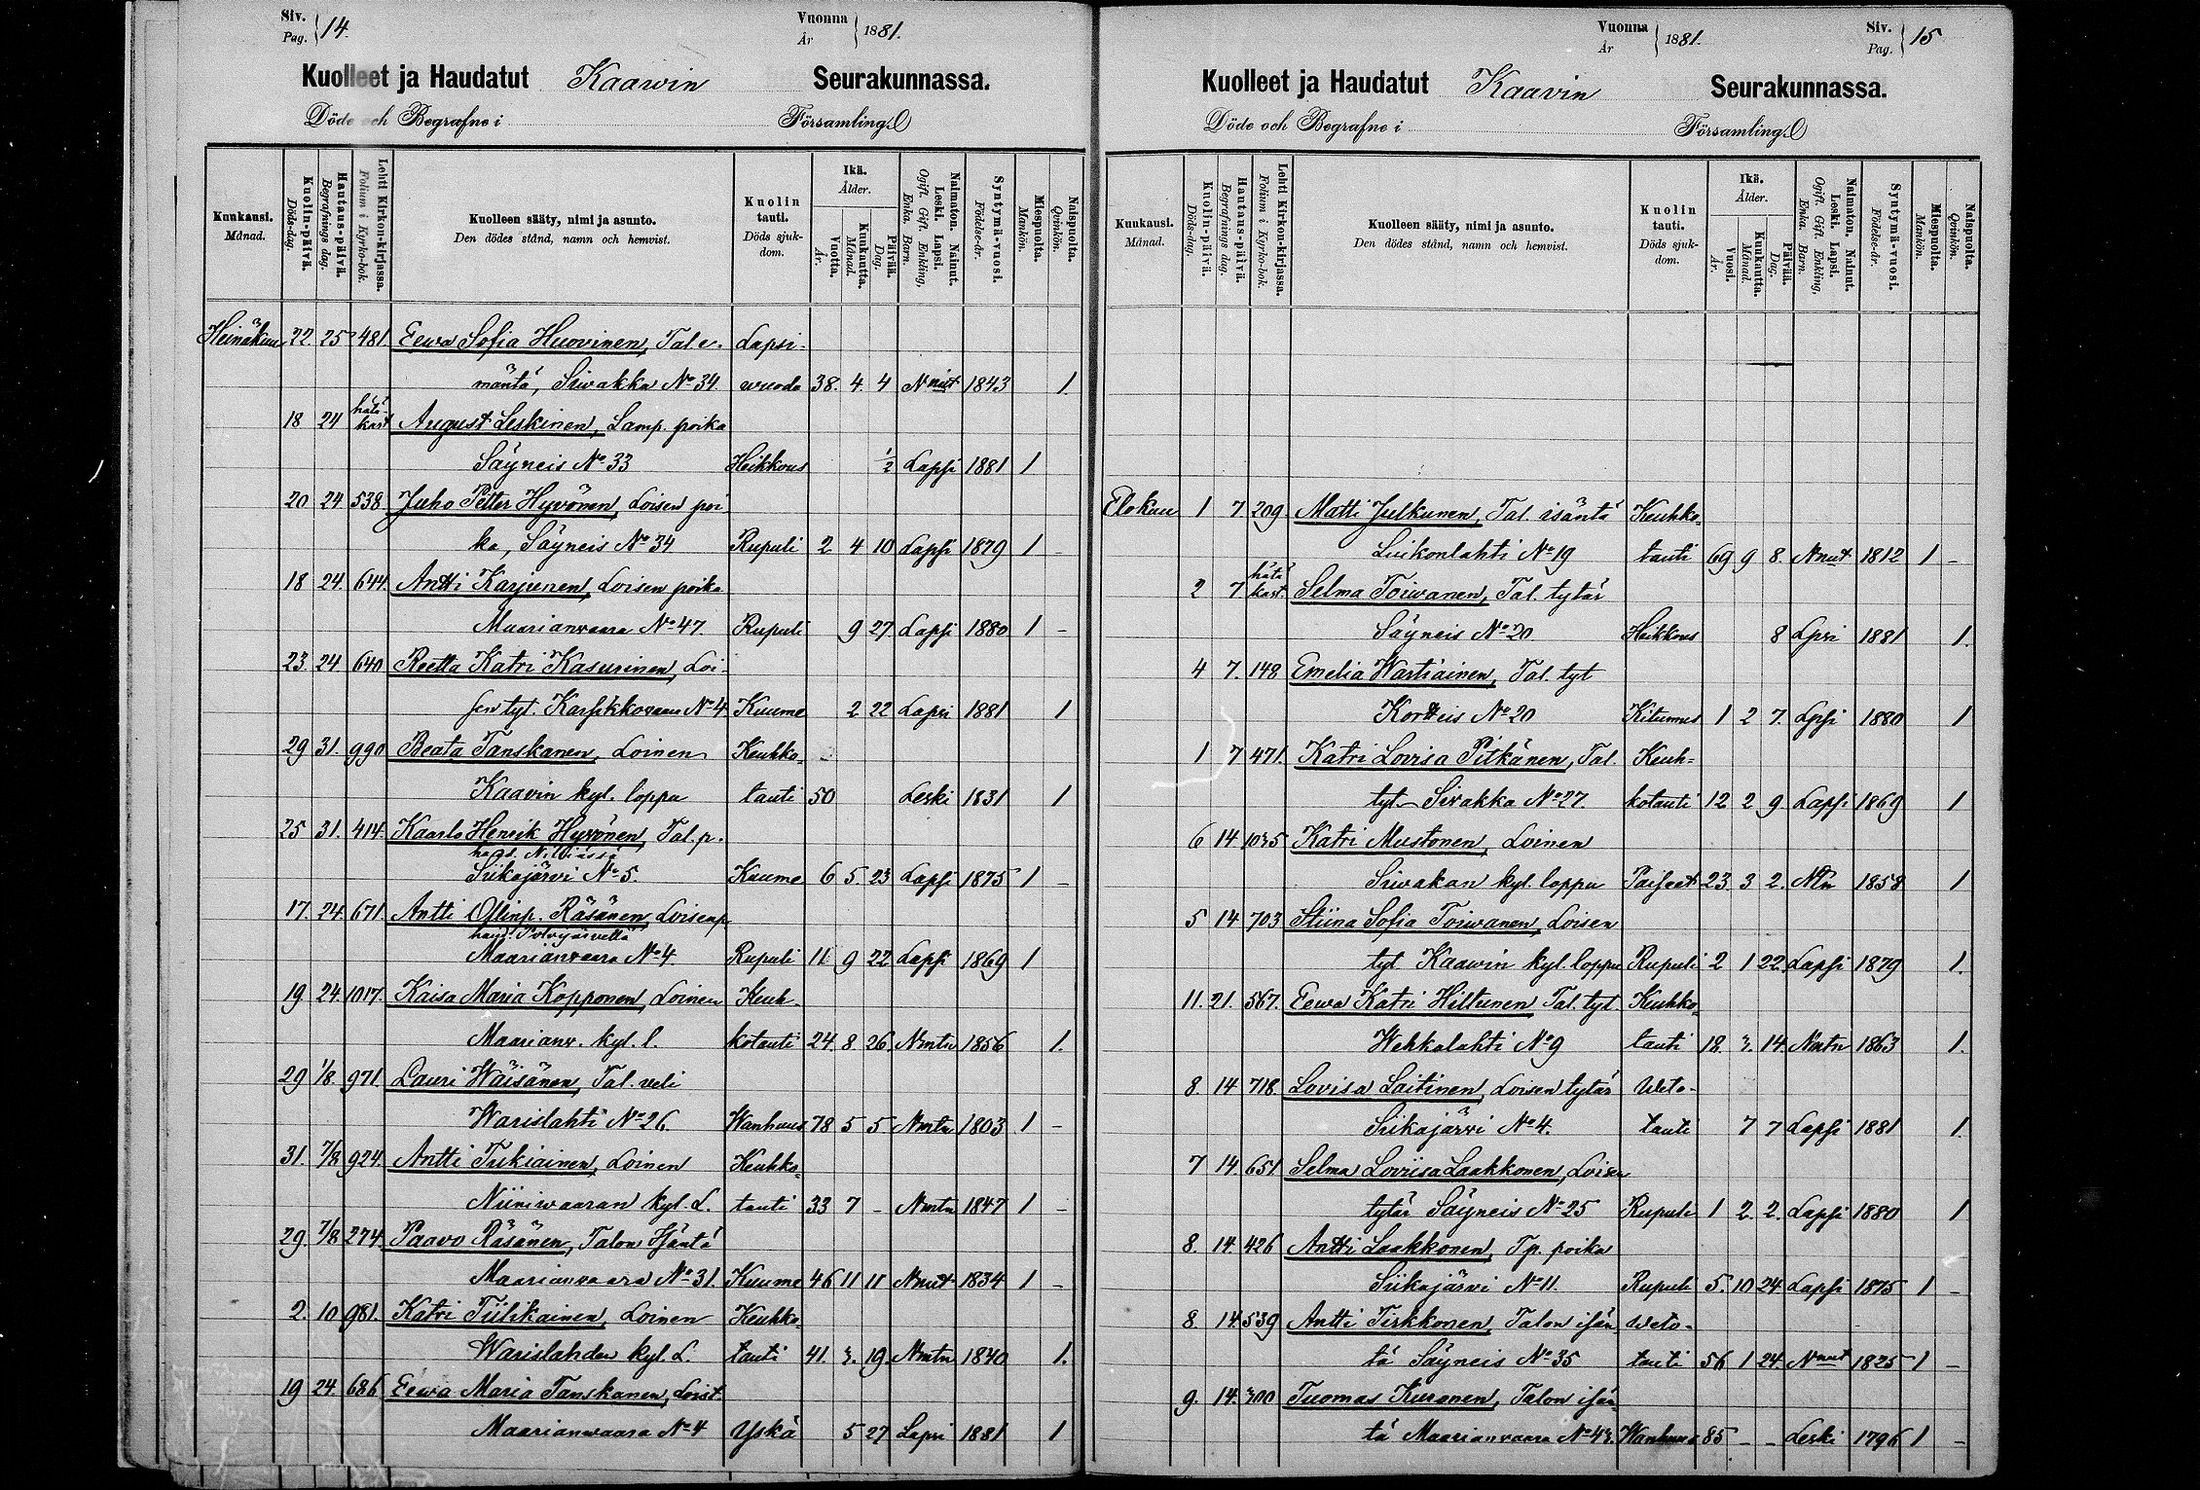 Siv. Pag. 14. Vuonna År 1881.
Kuolleet ja Haudatut Kaawin Seurakunnassa.
Döde och Begrafne i Församling.
Kuukausi. Månad. Kuolin-päivä. Döds-dag. Hautaus-päivä. Begrafnings dag. Lehti Kirkon-kirjassa. Folium i Kyrko-bok. Kuolleen sääty, nimi ja asunto. Den dödes stånd, namn och hemvist. Kuolin tauti. Döds sjukdom. Ikä. Ålder. Vuotta. År. Kuukautta. Månad. Päivää. Dag. Naimaton. Nainut. Leski. Lapsi. Ogift. Gift. Enkling, Enka. Barn. Syntymä-vuosi. Födelse-år. Miespuolta. Mankön. Naispuolta. Qvinkön.
Heinäkuu 22 25 481 Eewa Sofia Huovinen, Tal. e- Lapsi-
mäntä, Siwakka No 34 wuode 38. 4. 4 Nnut 1843 1.
18 24 hätäkast August Leskinen, Lamp. poika
Säyneis No 33 Heikkous 1/2 Lapsi 1881 1
20 24 538 Juho Petter Hyvönen, Loisen poi
ka, Säyneis No 34 Rupuli 2 4 10 Lapsi 1879 1 -
18 24. 644. Antti Karjunen, Loisen poika
Maarianvaara No 47. Rupuli 9 27 Lapsi 1880 1 -
23. 24 640 Reetta Katri Kasurinen, Loi-
sen tyt. Karsikkovaara No 4 Kuume 2 22 Lapsi 1881 1
29 31. 990 Beata Tanskanen, Loinen Keuhko-
Kaavin kyl. loppu tauti 50 Leski 1831 1
25 31. 414. Kaarlo Henrik Hyvönen, Tal. p.
haud. Nilsiässä
Siikajärvi No 5. Kuume 6 5. 23 Lapsi 1875 1 -
17 24. 671. Antti Räsänen, Loisenp
haud. Polvijärvellä
Maarianvaara No 4 Rupuli 11 9 22 Lapsi 1869 1
19 24 1017. Kaisa Maria Kopponen, Loinen Keuh-
Maarianv. kyl. l. kotauti 24. 8 26. Nmtn 1856 1.
29 1/8. 971. Lauri Wäisänen, Tal. veli
Warislahti No 26. Wanhuus 78 5 5 Nmtn 1803 1 -
31. 7/8 924. Antti Tukiainen, Loinen Keuhko-
Niiniwaaran kyl. L. tauti 33 7 - Nmtn 1847 1 -
29. 7/8 274. Paavo Räsänen, Talon Isäntä
Maarianvaara No 31. Kuume 46 11 11 Nnut 1834 1 -
2. 10 981. Katri Tiilikainen, Loinen Keuhko-
Warislahden kyl. L. tauti 41. 3. 19. Nmtn 1840 1.
19 24. 686 Eewa Maria Tanskanen, Loist.
Maarianwaara No 4 Yskä 5 27 Lapsi 1881 1
Vuonna År 1881. Siv. Pag. 15
Kuolleet ja Haudatut Kaavin Seurakunnassa.
Döde och Begrafne i Församling.
Kuukausi. Månad. Kuolin-päivä. Döds-dag. Hautaus-päivä Begrafnings dag. Lehti Kirkon-kirjassa. Folium i Kyrko-bok. Kuolleen sääty, nimi ja asunto. Den dödes stånd, namn och hemvist. Kuolin tauti. Döds sjukdom. Ikä. Ålder. Vuosi. År. Kuukautta. Månad. Päivää. Dag. Naimaton. Nainut. Leski. Lapsi. Ogift. Gift. Enkling, Enka. Barn. Syntymä-vuosi. Födelse-år. Miespuolta. Mankön. Naispuolta. Qvinkön.
Elokuu 1 7 209 Matti Julkunen, Tal. isäntä Keuhko-
Luikonlahti No 19 tauti 69 9 8. Nnut 1812 1 -
2 7 hätä kast. Selma Toiwanen, Tal. tytär
Säyneis No 20 Heikkous 8 Lpsi 1881 1.
4 7. 148 Emelia Wartiainen, Tal. tyt
Kortteis No 20 Kitumus 1 2 7. Lpsi 1880 1
1 7 471. Katri Lovisa Pitkänen, Tal. Keuh-
tyt. Sivakka No 27. kotauti 12 2 9 Lapsi 1869 1
6 14 1035 Katri Mustonen, Loinen
Siwakan kyl. loppu Paiseet 23 3 2. Ntn 1858 1
5 14 703 Stiina Sofia Toiwanen, Loisen
tyt Kaawin kyl. loppu Rupuli 2 1 22. Lapsi 1879 1.
11. 21. 567. Eewa Katri Hiltunen Tal. tyt. Keuhko-
Wehkalahti No 9 tauti 18. 3. 14. Nmtn 1863 1.
8. 14 718. Lovisa Laitinen, Loisen tytär Weto-
Siikajärvi No 4. tauti 7 7 Lapsi 1881 1.
7 14. 651 Selma Loviisa Laakkonen, Loisen
tytär Säyneis No 25 Rupuli 1 2. 2. Lapsi 1880 1
8. 14. 426 Antti Laakkonen, Tp. poika
Siikajärvi No 11. Rupuli 5. 10 24. Lapsi 1875 1 -
8 14. 539 Antti Tirkkonen, Talon isän Weto-
tä Säyneis No 35 tauti 56 1 24. Nnut 1825 1 -
9. 14. 300 Tuomas Kuronen, Talon isän
tä Maarianvaara No 43. Wanhuus 85 - - Leski 1796 1 -